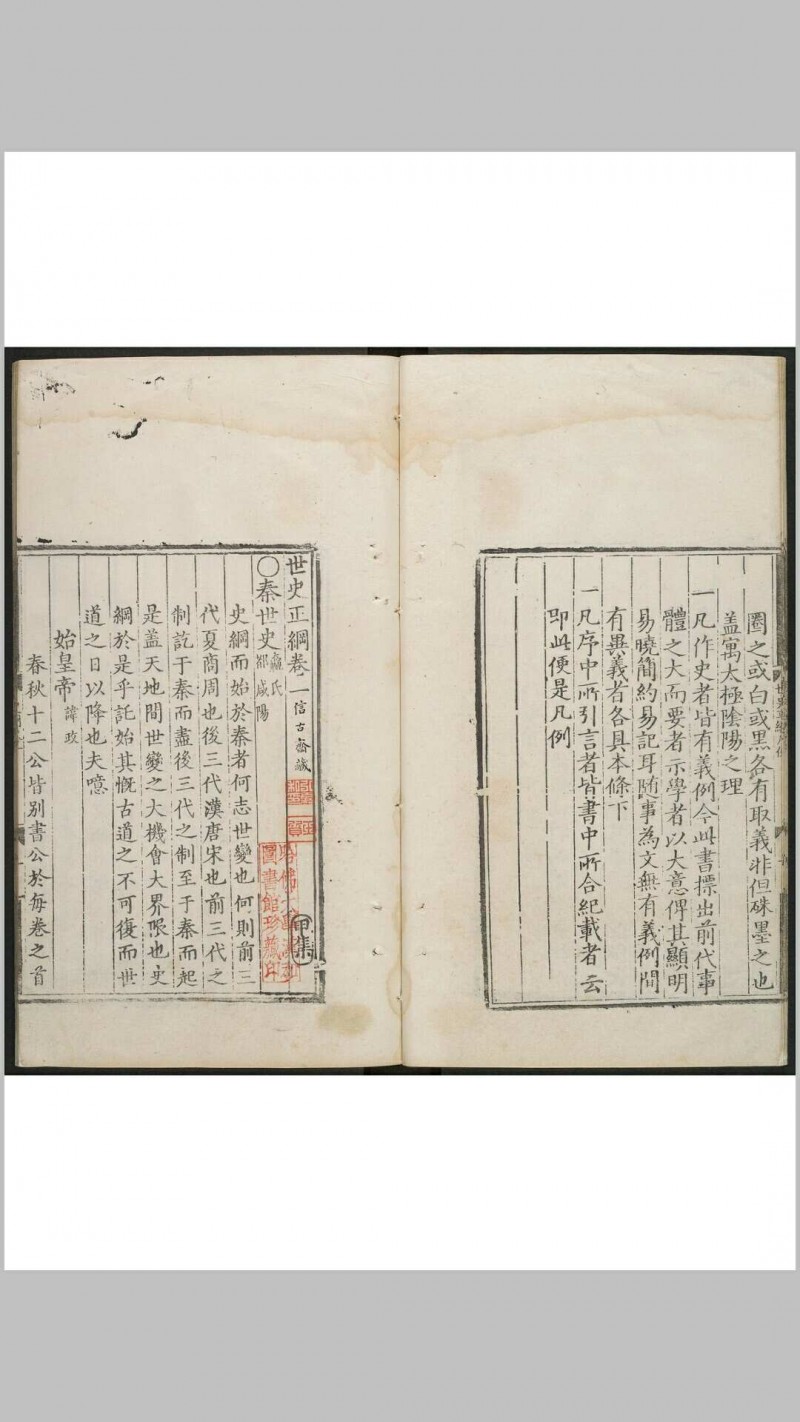 圈之或白或黑各有取義非但硃墨之也
蓋寓太極陰陽之理
一凡作史者皆有義例今此書摽出前代事
體之大而要者示學者以大意俾其顯明
易曉簡約易記耳隨事為文無有義例間
有異義者各具本條下
一凡序中所引言者皆書中所合紀載者云
即此便是凡例
世史正綱卷一 信古齋誠
〇秦世史 嬴氏 都咸陽
史綱而始於秦者何志世變也何則前三
代夏商周也後三代漢唐宋也前三代之
制訖于秦而盡後三代之制至于秦而起
是蓋天地間世變之大機會大界限也史
綱於是乎託始其慨古道之不可復而世
道之日以降也夫噫
始皇帝 諱政
春秋十二公皆別書公於每卷之首
甲集
圖書館珍藏印